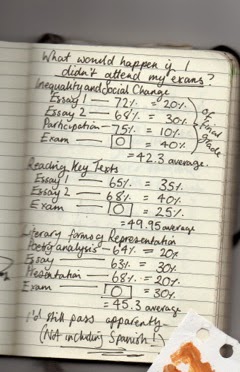 What would happen if I
didn't attend my exams?
Inequality and Social Change
Essay 1 — 72% = 20%
Essay 2 — 68% = 30%
Participation — 75% = 10%
Exam — 0 = 40%
of final grade
= 42.3 average.
Reading Key Texts
Essay 1 — 65% = 35%
Essay 2 — 68% = 40%
Exam — 0 = 25%
= 49.95 average
Literary forms of Representation
Poetry analysis — 64% = 20%
Essay — 63% = 30%
Presentation — 68% = 20%
Exam — 0 = 30%
= 45.3 average
I'd still pass apparently
(Not including Spanish!)